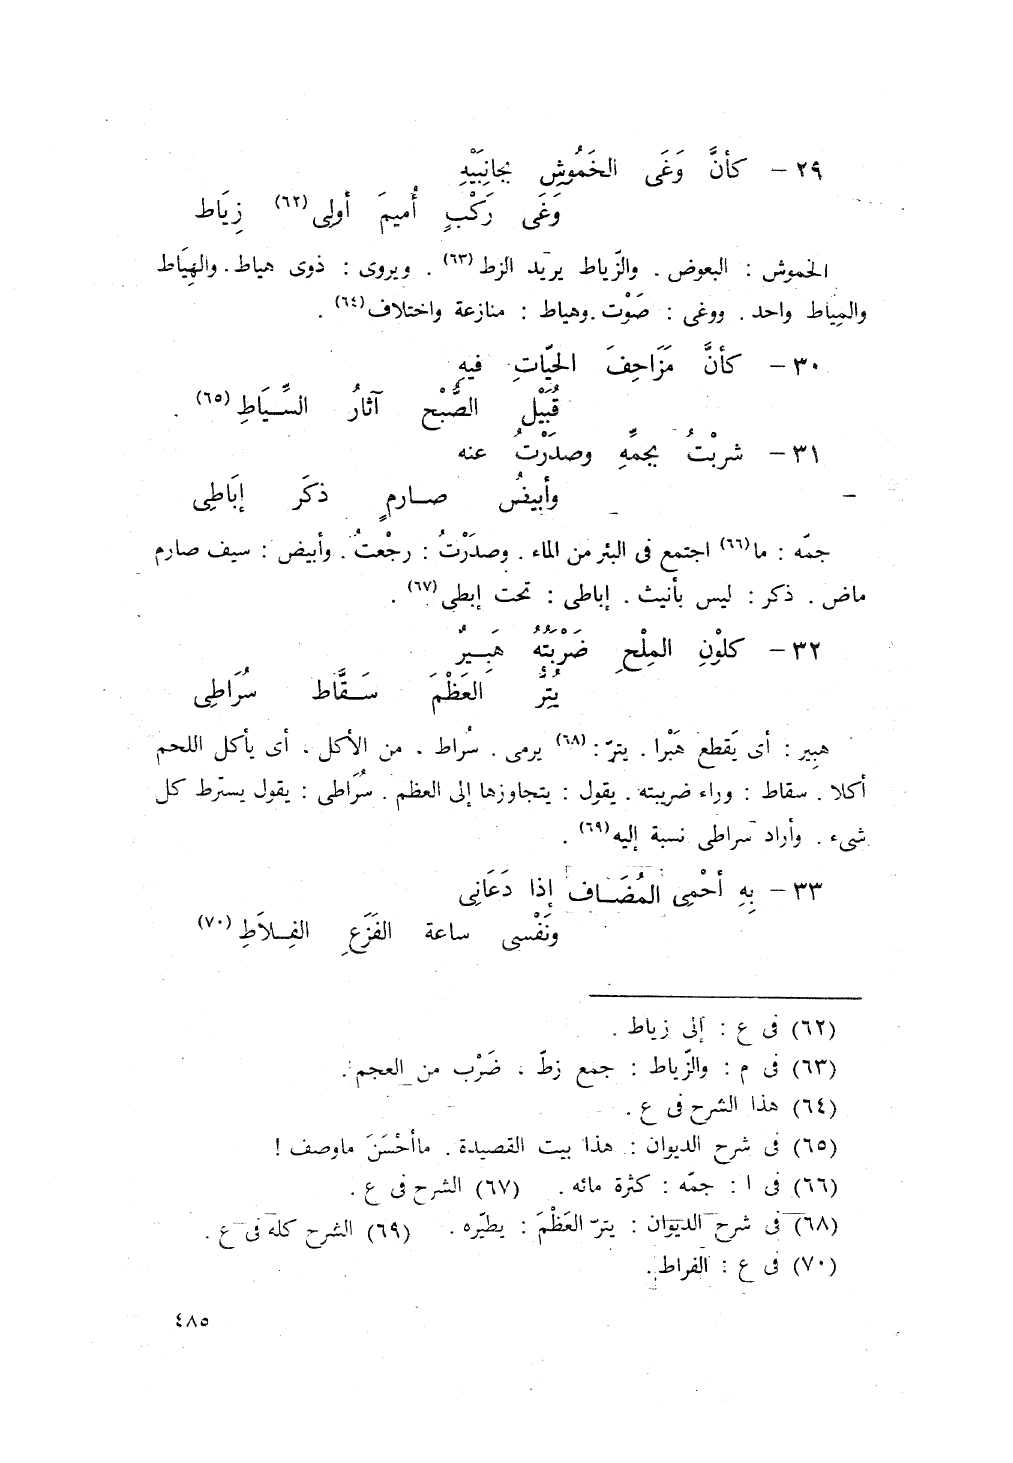 ٢٩ – كأنَّ وَغَى الخَمُوشِ بجانِبَيْهِ
وَغَى رَكْبٍ أُميمَ أولِى (٦٢) زِيَاط
الخموش : البعوض . والزّياط يريد الزط (٦٣) . ويروى : ذوى هياط . والهِيَاط
والمِياط واحد . ووغى : صَوْت . وهياط : منازعة واختلاف (٦٤) .
٣٠ – كأنَّ مَزَاحِفَ الحَيّاتِ فيهِ
قُبَيْل الصُّبْح آثارُ السِّيَاطِ (٦٥) .
٣١ – شربْتُ بجمِّهِ وصدَرْتُ عنه
وأبيضُ صارمٍ ذكَر إبَاطِى
جمّه : ما (٦٦) اجتمع فى البئر من الماء . وصدَرْتُ : رجْعتُ . وأبيض : سيف صارم
ماض . ذكر : ليس بأنيث . إباطى : تحت إبطى (٦٧) .
٣٢ – كلوْنِ المِلْحِ ضَرْبَتُهُ هَبِيرٌ
يُتِرُّ العَظْمَ سَقَّاط سُرَاطِى
هبِير : أى يَقطع هَبْرا . يترّ : (٦٨) يرمى . سُراط . من الأكل . أى يأكل اللحم
أكلا . سقاط : وراء ضريبته . يقول : يتجاوزها إلى العظم . سُرَاطى : يقول يسترط كل
شىء . وأراد سراطى نسبة إليه (٦٩) .
٣٣ – بِهِ أحْمِى المُضَاف إذا دَعَانِى
ونَفْسى ساعة الفَزَعِ الفِلاَطِ (٧٠)
(٦٢) فى ع : إلى زياط .
(٦٣) فى م : والزّياط : جمع زطّ ، ضَرْب من العجم .
(٦٤) هذا الشرح فى ع .
(٦٥) فى شرح الديوان : هذا بيت القصيدة . ماأحْسَنَ ماوصف !
(٦٦) فى ا : جمّه : كثرة مائه . (٦٧) الشرح فى ع .
(٦٨) فى شرح الديوان : يترّ العَظْمَ : يطيّره . (٦٩) الشرح كله فى ع .
(٧٠) فى ع : الفراط .
٤٨٥